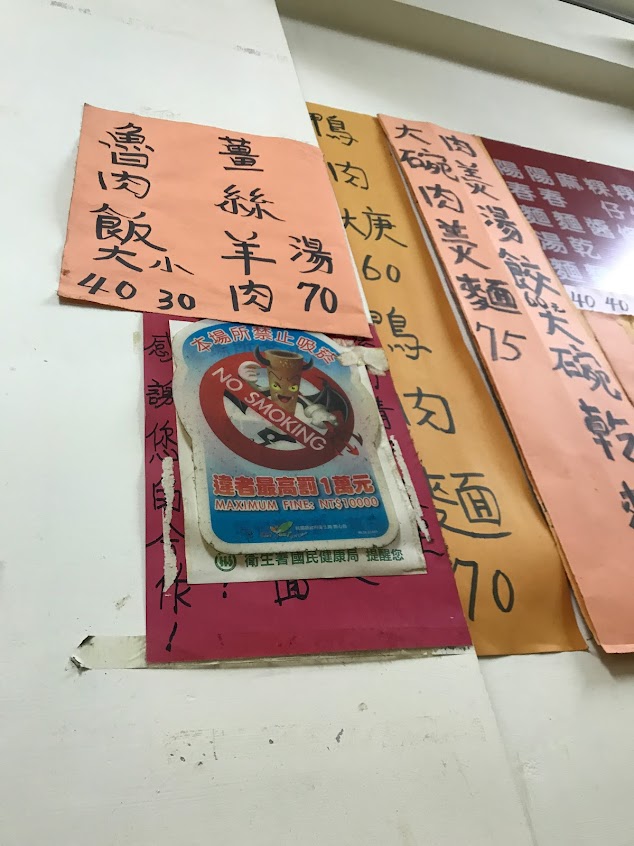 魯肉飯
大 小
40 30
薑絲羊肉湯
70
鴨肉
60
鴨肉麵
70
大碗肉羹麵
75
肉羹湯餃
60元
大碗乾
陽春
陽春
麻
40 40
本場所禁止吸菸
NO SMOKING
違者最高罰1萬元
MAXIMUM FINE: NT$10000
衛生署國民健康局 提醒您
感謝您的合作!